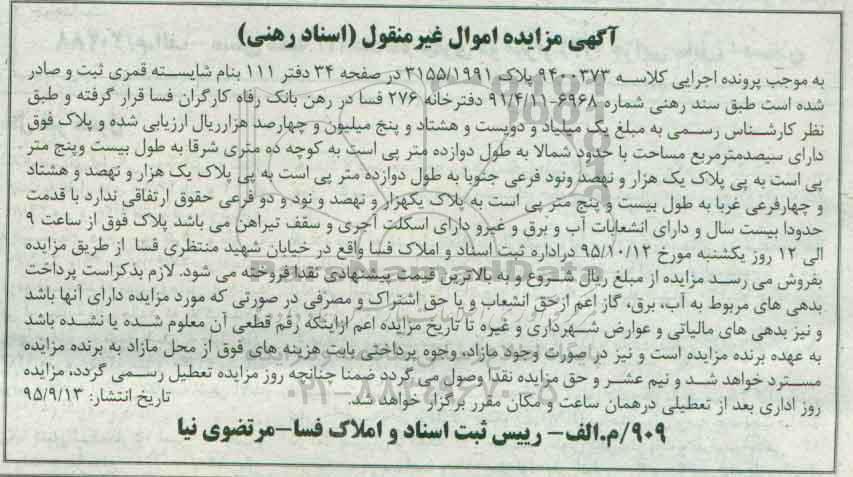 آگهی مزایده اموال غیرمنقول (اسناد رهنی)
به موجب پرونده اجرایی کلاسه ۹۴۰۰۳۷۳ پلاک ۳۱۵۵/۱۹۹۱ در صفحه ۳۴ دفتر ۱۱۱ بنام شایسته قمری ثبت و صادر
شده است طبق سند رهنی شماره ۶۹۶۸-۹۱/۴/۱۱ دفترخانه ۲۷۶ فسا در رهن بانک رفاه کارگران فسا قرار گرفته و طبق
نظر کارشناس رسمی به مبلغ یک میلیاد و دویست و هشتاد و پنج میلیون و چهارصد هزارریال ارزیابی شده و پلاک فوق
دارای سیصدمترمربع مساحت با حدود شمالا به طول دوازده متر پی است به کوچه ده متری شرقا به طول بیست وپنج متر
پی است به پی پلاک یک هزار و نهصد ونود فرعی جنوبا به طول دوازده متر پی است به پی پلاک یک هزار و نهصد و هشتاد
و چهارفرعی غربا به طول بیست و پنج متر پی است به پلاک یکهزار و نهصد و نود و دو فرعی حقوق ارتفاقی ندارد با قدمت
حدودا بیست سال و دارای انشعابات آب و برق و غیرو دارای اسکلت آجری و سقف تیراهن می باشد پلاک فوق از ساعت ۹
الی ۱۲ روز یکشنبه مورخ ۹۵/۱۰/۱۲ دراداره ثبت اسناد و املاک فسا واقع در خیابان شهید منتظری قسا از طریق مزایده
بفروش می رسد مزایده از مبلغ ریال شروع و به بالاترین قیمت پیشنهادی نقدا فروخته می شود. لازم بذکراست پرداخت
بدهی های مربوط به آب، برق، گاز اعم ازحق انشعاب و یا حق اشتراک و مصرفی در صورتی که مورد مزایده دارای آنها باشد
و نیز بدهی های مالیاتی و عوارض شهرداری و غیره تا تاریخ مزایده اعم ازاینکه رقم قطعی آن معلوم شده یا نشده باشد
به عهده برنده مزایده است و نیز در صورات وجود مازاد، وجوه پرداختی بابت هزینه های فوق از محل مازاد به برنده مزایده
مسترد خواهد شد و نیم عشر و حق مزایده نقدا وصول می گردد ضمنا چنانچه روز مزایده تعطیل رسمی گردد، مزایده
روز اداری بعد از تعطیلی درهمان ساعت و مکان مقرر برگزار خواهد شد. تاریخ انتشار: ۹۵/۹/۱۳
۹۰۹/م.الف- رییس ثبت اسناد و املاک فسا-مرتضوی نیا